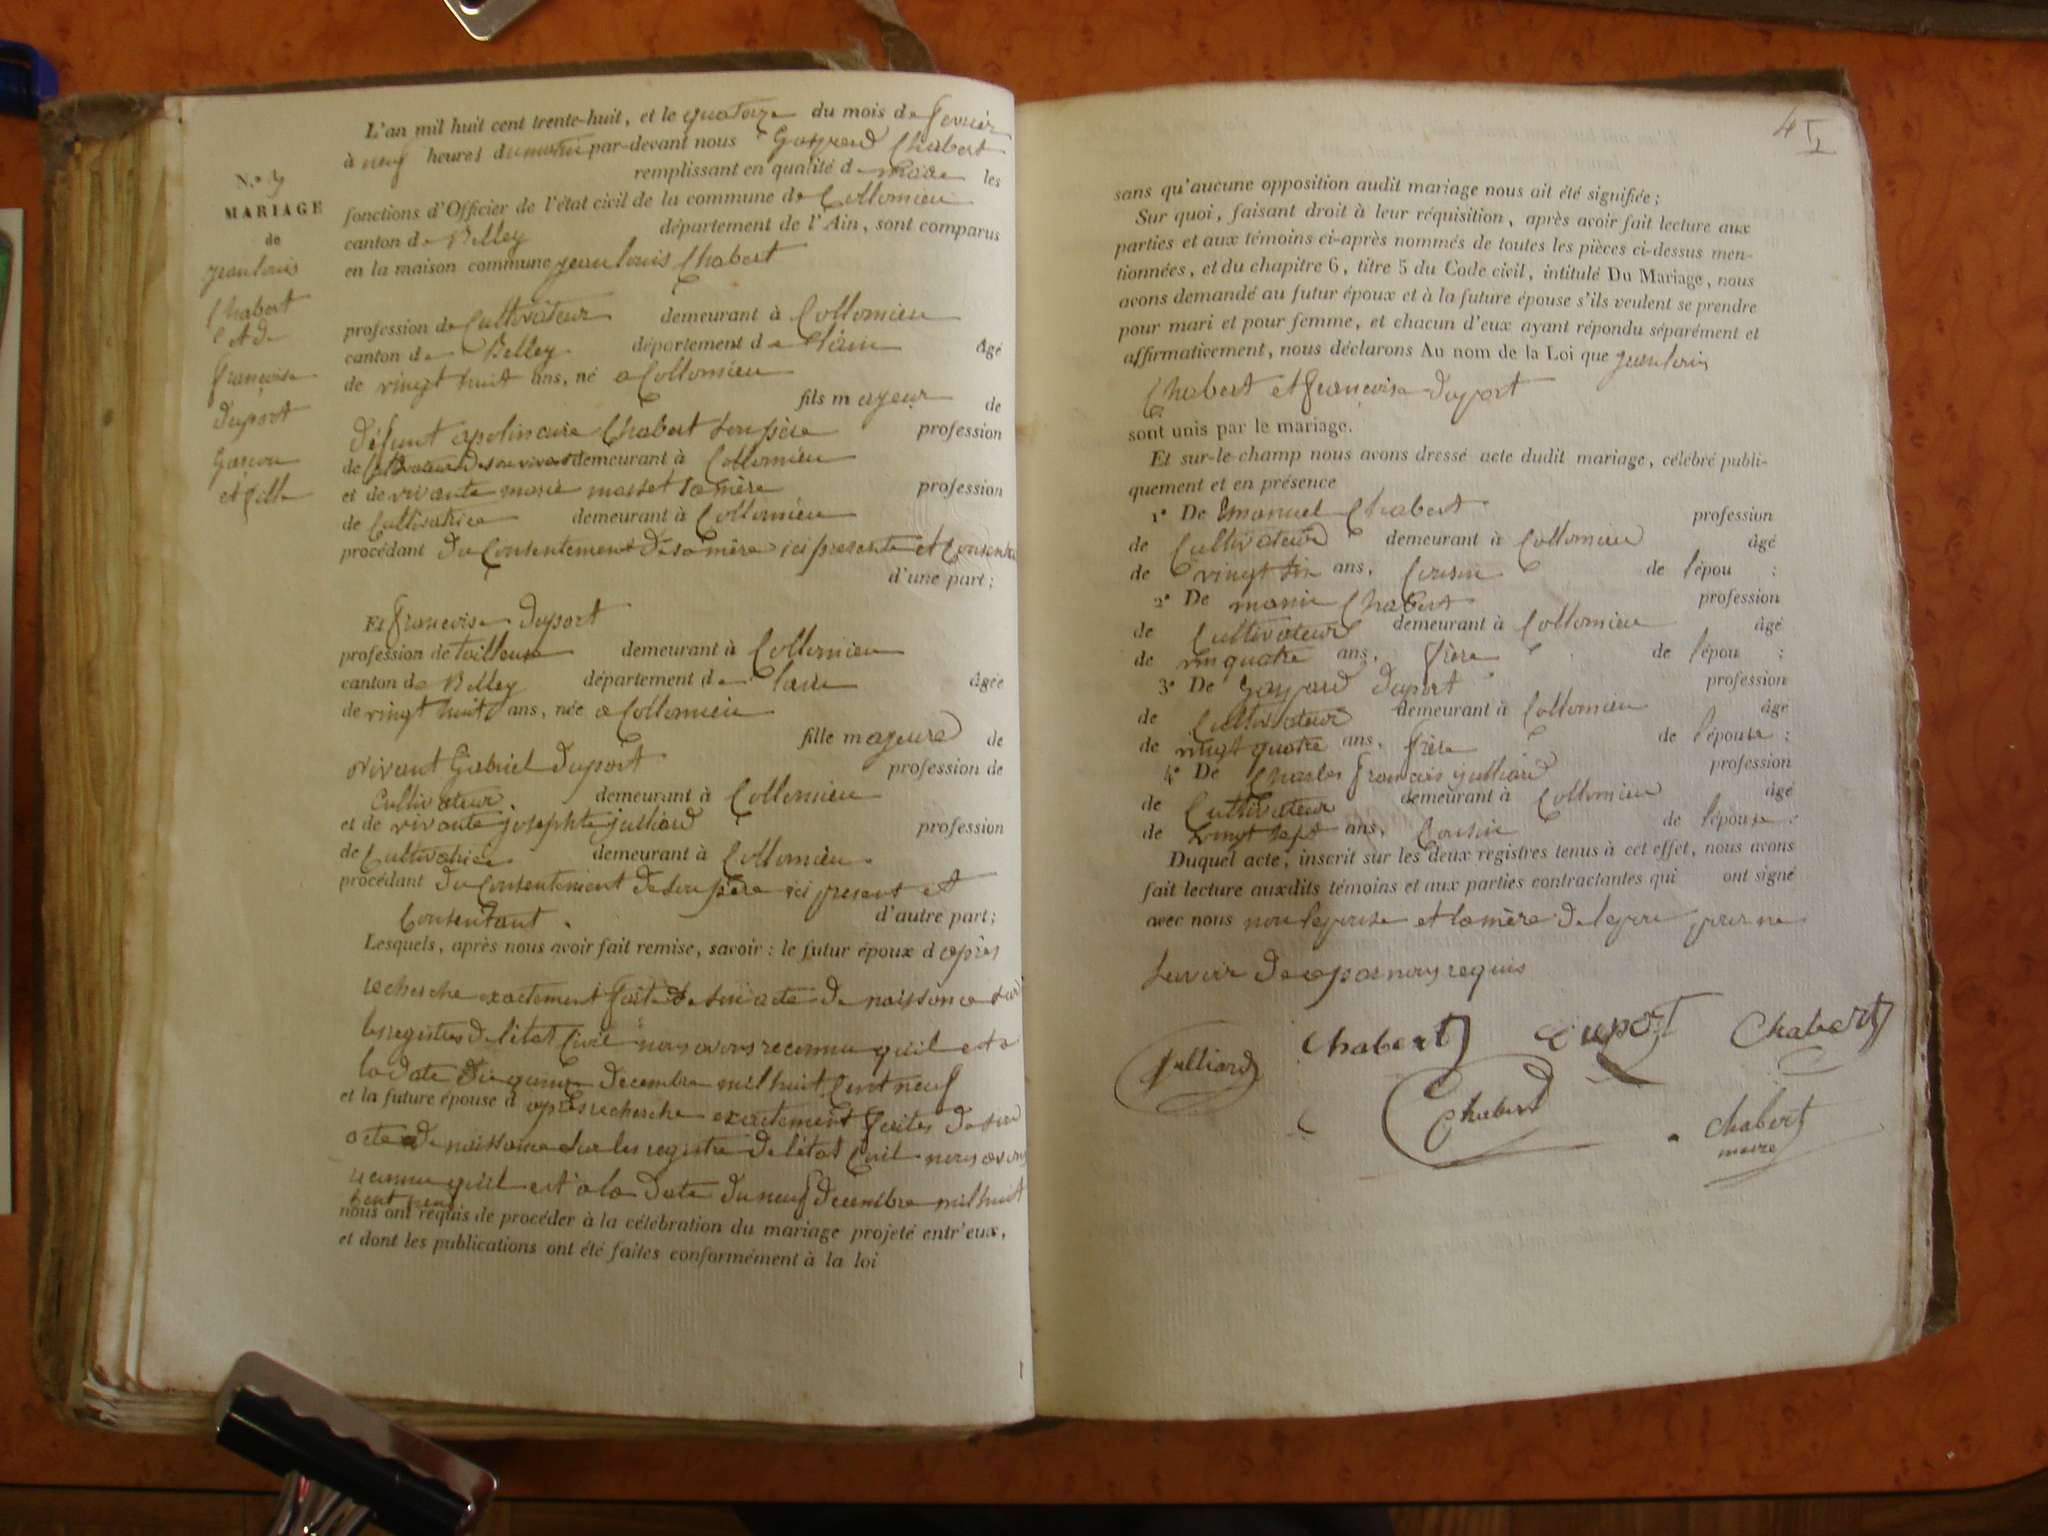 N.º 3
MARIAGE
de
jean louis
Chabert
et de
françoise
duport
garcon
et fille
L'an mil huit cent trente-huit, et le quatorze du mois de fevrier
à neuf heures du matin par-devant nous Gaspard Chabert
remplissant en qualité de maire les
fonctions d'Officier de l'état civil de la commune de Collomieu
canton de Belley département de l'Ain, sont comparus
en la maison commune jean louis Chabert
profession de Cultivateur demeurant à Collomieu
canton de Belley département de l'ain âgé
de vingt huit ans, né a Collomieu
fils majeur de
défunt apolinaire Chabert son père profession
de Cultivateur de son vivant demeurant à Collomieu
et de vivante marie masset sa mère profession
de Cultivatrice demeurant à Collomieu
procédant du Consentement de sa mère ici presente et Consente
d'une part;
Et françoise duport
profession de tailleuse demeurant à Collomieu
canton de Belley département de l'ain âgée
de vingt huit ans, née a Collomieu
fille majeure de
vivant Gabriel duport profession de
Cultivateur. demeurant à Collomieu
et de vivante josephte julliard profession
de Cultivatrice demeurant à Collomieu.
procédant du Consentement de son père ici present et
Consentant. d'autre part;
Lesquels, après nous avoir fait remise, savoir: le futur époux d après
recherche exactement faite de son acte de naissance sur
les registres de l'état Civil nous avons reconnu qu'il est a
la date du quinze decembre mil huit Cent neuf
et la future épouse d après recherche exactement faites de son
acte de naissance sur les registre de l'état Civil nous avons
reconnu qu'il est a la date du neuf decembre mil huit
Cent neuf
nous ont requis de procéder à la célébration du mariage projeté entr'eux,
et dont les publications ont été faites conformément à la loi
4
sans qu'aucune opposition audit mariage nous ait été signifiée;
Sur quoi, faisant droit à leur réquisition, après avoir fait lecture aux
parties et aux témoins ci-après nommés de toutes les pièces ci-dessus men-
tionnées, et du chapitre 6, titre 5 du Code civil, intitulé Du Mariage, nous
avons demandé au futur époux et à la future épouse s'ils veulent se prendre
pour mari et pour femme, et chacun d'eux ayant répondu séparément et
affirmativement, nous déclarons Au nom de la Loi que jean louis
Chabert et françoise duport
sont unis par le mariage.
Et sur-le-champ nous avons dressé acte dudit mariage, célébré publi-
quement et en présence
1º De Emanuel Chabert profession
de Cultivateur demeurant à Collomieu âgé
de vingt six ans, Cousin de l'épou ;
2º De Chabert profession
de Cultivateur demeurant à Collomieu âgé
de vin quatre ans, frère de l'épou ;
3º De Gaspard duport profession
de Cultivateur demeurant à Collomieu âgé
de vingt quatre ans, frère de l'épouse ;
4º De Charles françois julliard profession
de Cultivateur demeurant à Collomieu âgé
de vingt sept ans, Cousin de l'épouse.
Duquel acte, inscrit sur les deux registres tenus à cet effet, nous avons
fait lecture auxdits témoins et aux parties contractantes qui ont signé
avec nous non l'epouse et la mère de l'epou pour ne
savoir de ce par nous requis
Julliard Chabert Duport Chabert
Chabert Chabert
maire